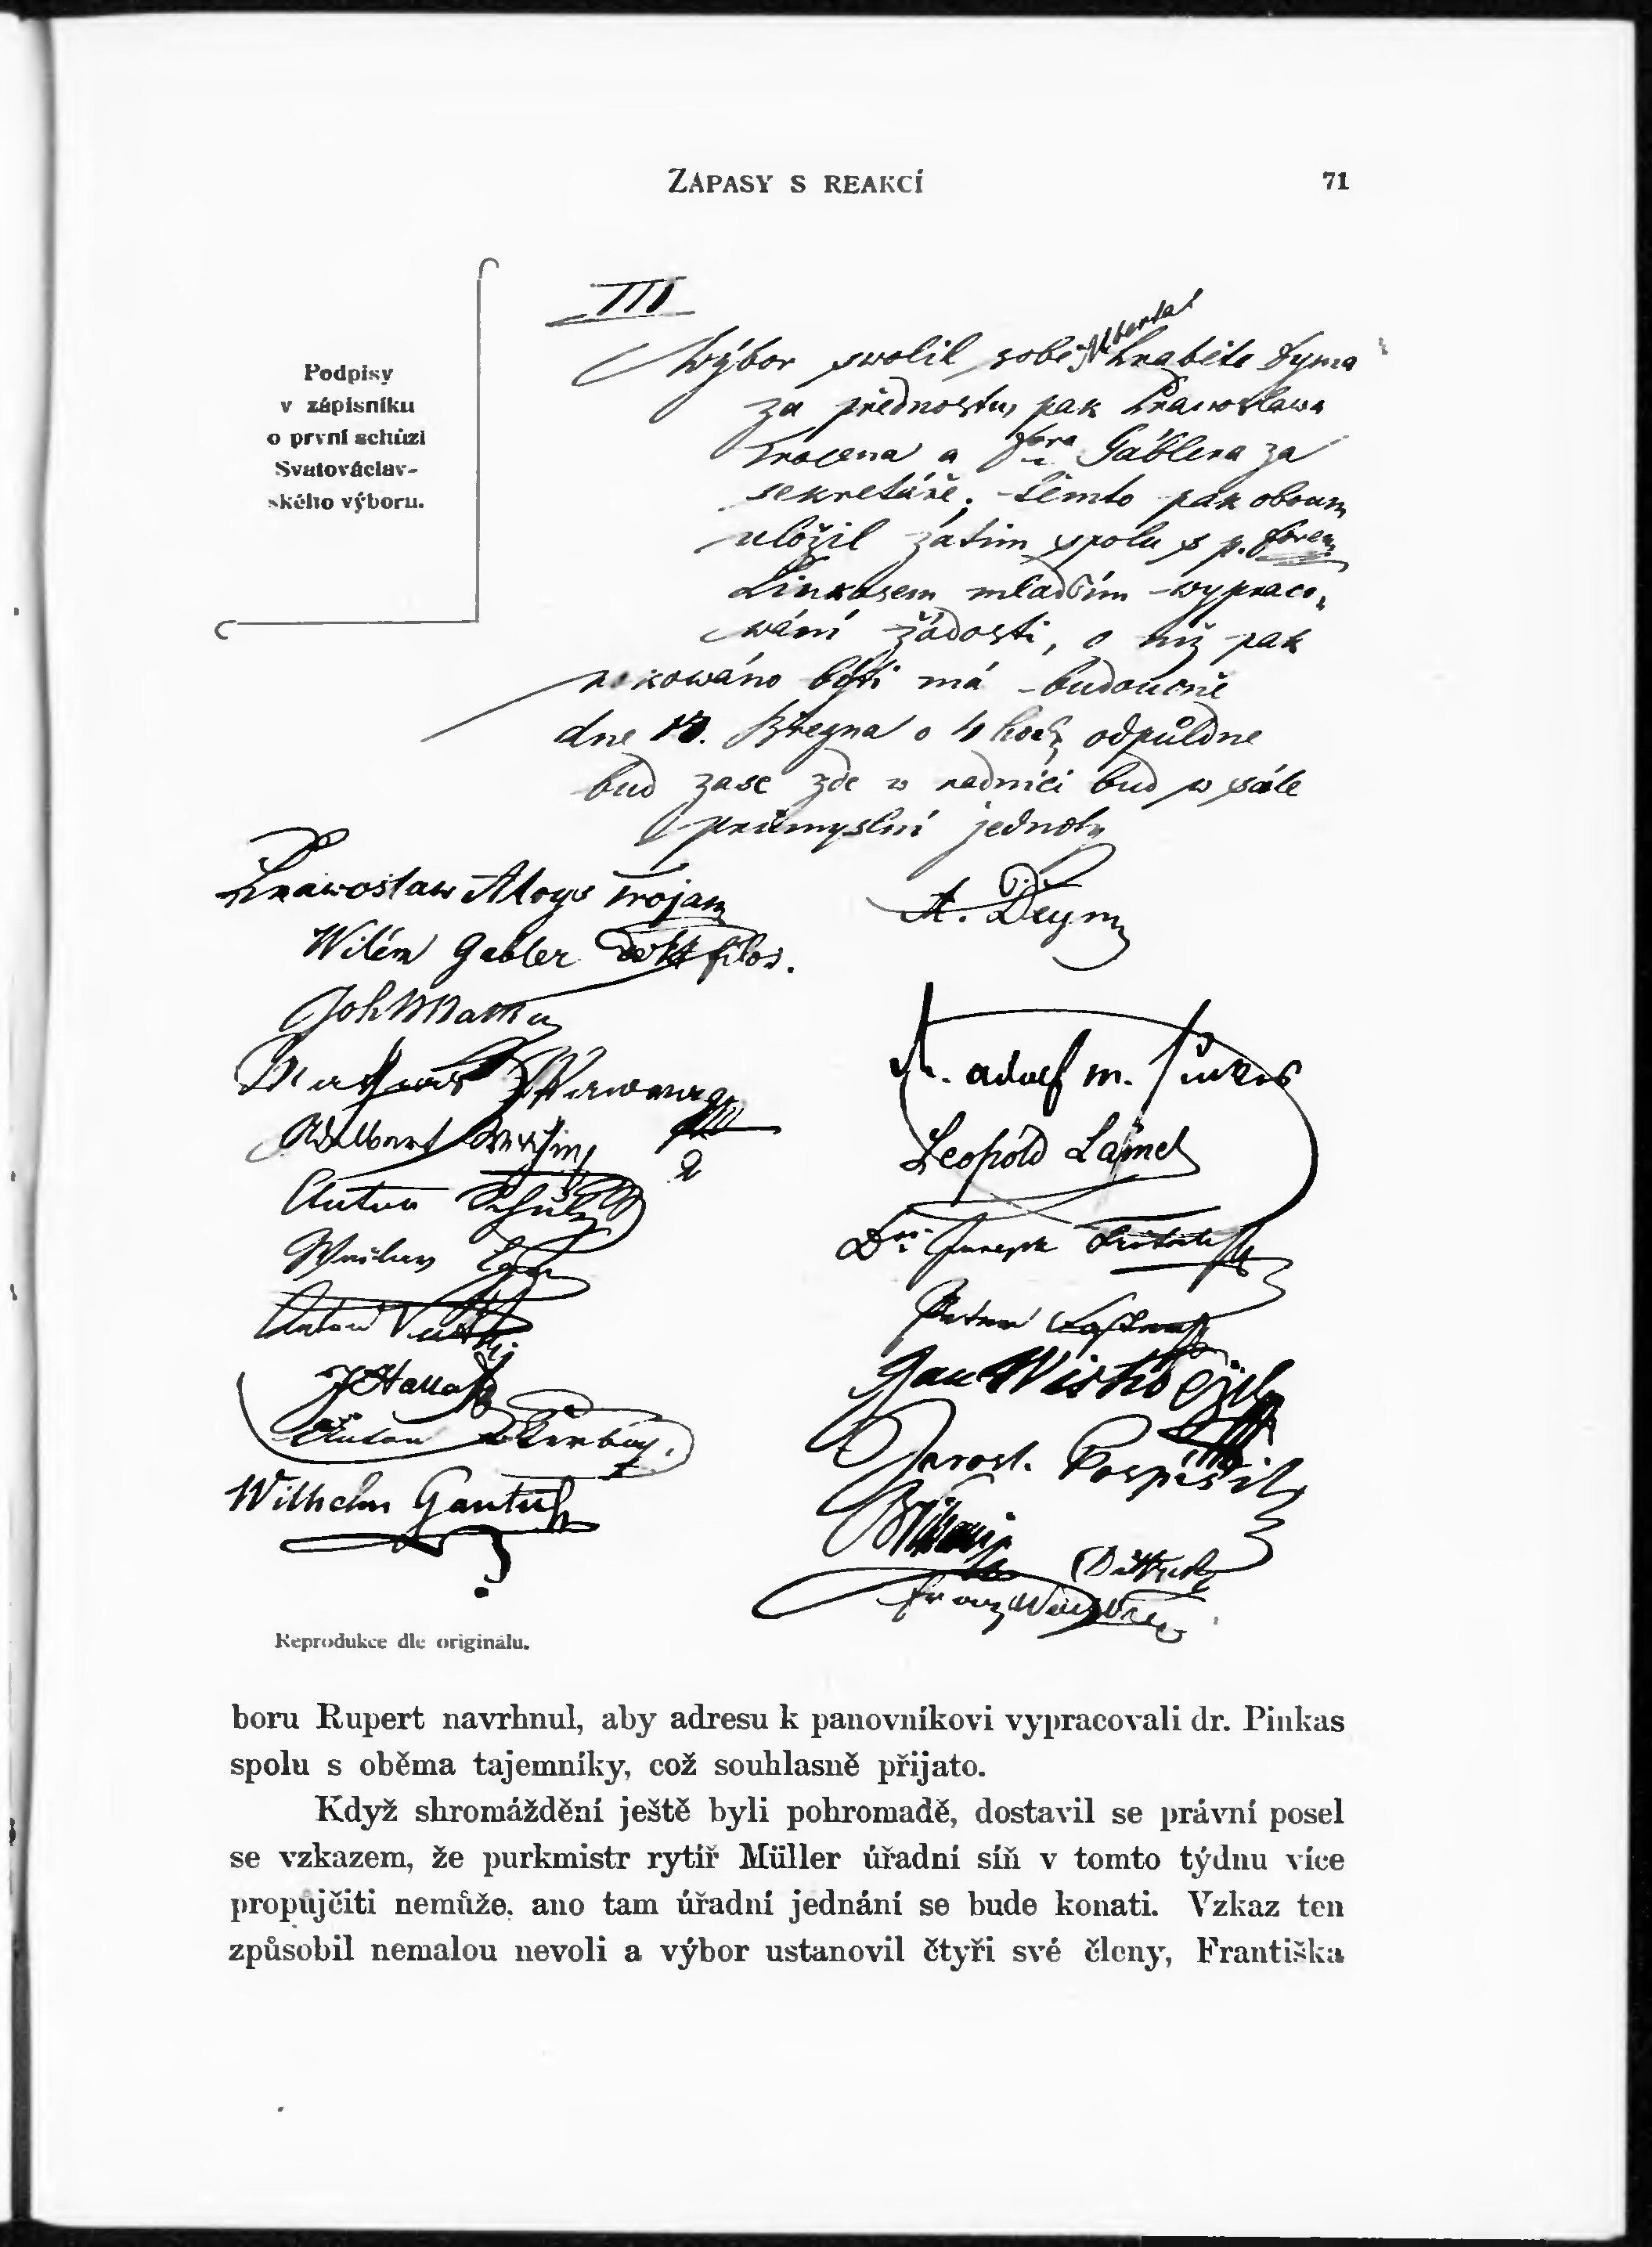 ZÁPASY S REAKCÍ 71
Podpisy
v zápisníku
o první schůzi
Svatováclav-
ského výboru.
III
Wýbor zwolil sobě Alberta hraběte Dyma
za přednostu, pak Prawoslawa
Trojana a Gáblera za
sekretáře; těmto pak oboum
uložil zatím spolu s p.
Pinkasem mladším wypraco-
wání žádosti, o níž pak
rokowáno býti má budoucně
dne Března o 4 hod odpůldne
buď zase zde w radnici buď w sále
průmyslní jednoty
Prawoslaw Aloys Trojan
A. Deym
Wilém Gabler filos.
adolf m. Pinkas
Leopold Lämel
Anton
Peter
Jan
Anton
Jarosl. Pospíšil
Wilhelm
Dittrich
Franz
Reprodukce dle originálu.
boru Rupert navrhnul, aby adresu k panovníkovi vypracovali dr. Pinkas
spolu s oběma tajemníky, což souhlasně přijato.
Když shromáždění ještě byli pohromadě, dostavil se právní posel
se vzkazem, že purkmistr rytíř Müller úřadní síň v tomto týdnu více
propůjčiti nemůže, ano tam úřadní jednání se bude konati. Vzkaz ten
způsobil nemalou nevoli a výbor ustanovil čtyři své členy, Františka